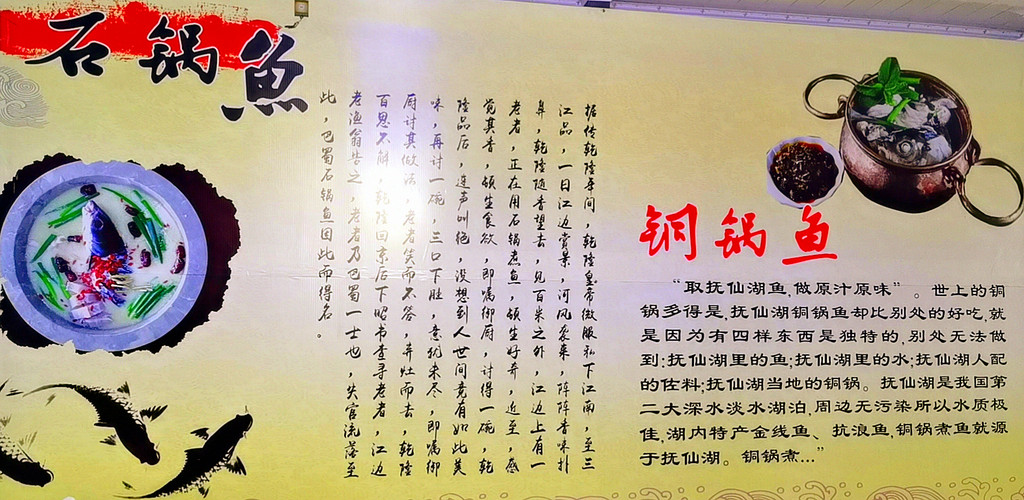 石锅鱼
据传乾隆年间，乾隆皇帝微服私下江南，至三
江品，一日江边赏景，河风袭来，阵阵香味扑
鼻，乾隆随香望去，见百米之外，江边上有一
老者，正在用石锅煮鱼，顿生好奇，近至，感
觉其香，顿生食欲，即嘱御厨，讨得一碗，乾
隆品后，连声叫绝，没想到人世间竟有如此美
味，再讨一碗，三口下肚，意犹未尽，即嘱御
厨讨其做法，老者笑而不答，弃灶而去，乾隆
百思不解，乾隆回京后下昭书查寻老者，江边
老渔翁告之，老者乃巴蜀一士也，失官流落至
此，巴蜀石锅鱼因此而得名。
铜锅鱼
“取抚仙湖鱼,做原汁原味”。世上的铜
锅多得是,抚仙湖铜锅鱼却比别处的好吃,就
是因为有四样东西是独特的,别处无法做
到:抚仙湖里的鱼;抚仙湖里的水;抚仙湖人配
的佐料;抚仙湖当地的铜锅。抚仙湖是我国第
二大深水淡水湖泊,周边无污染所以水质极
佳,湖内特产金线鱼、抗浪鱼,铜锅煮鱼就源
于抚仙湖。铜锅煮...”